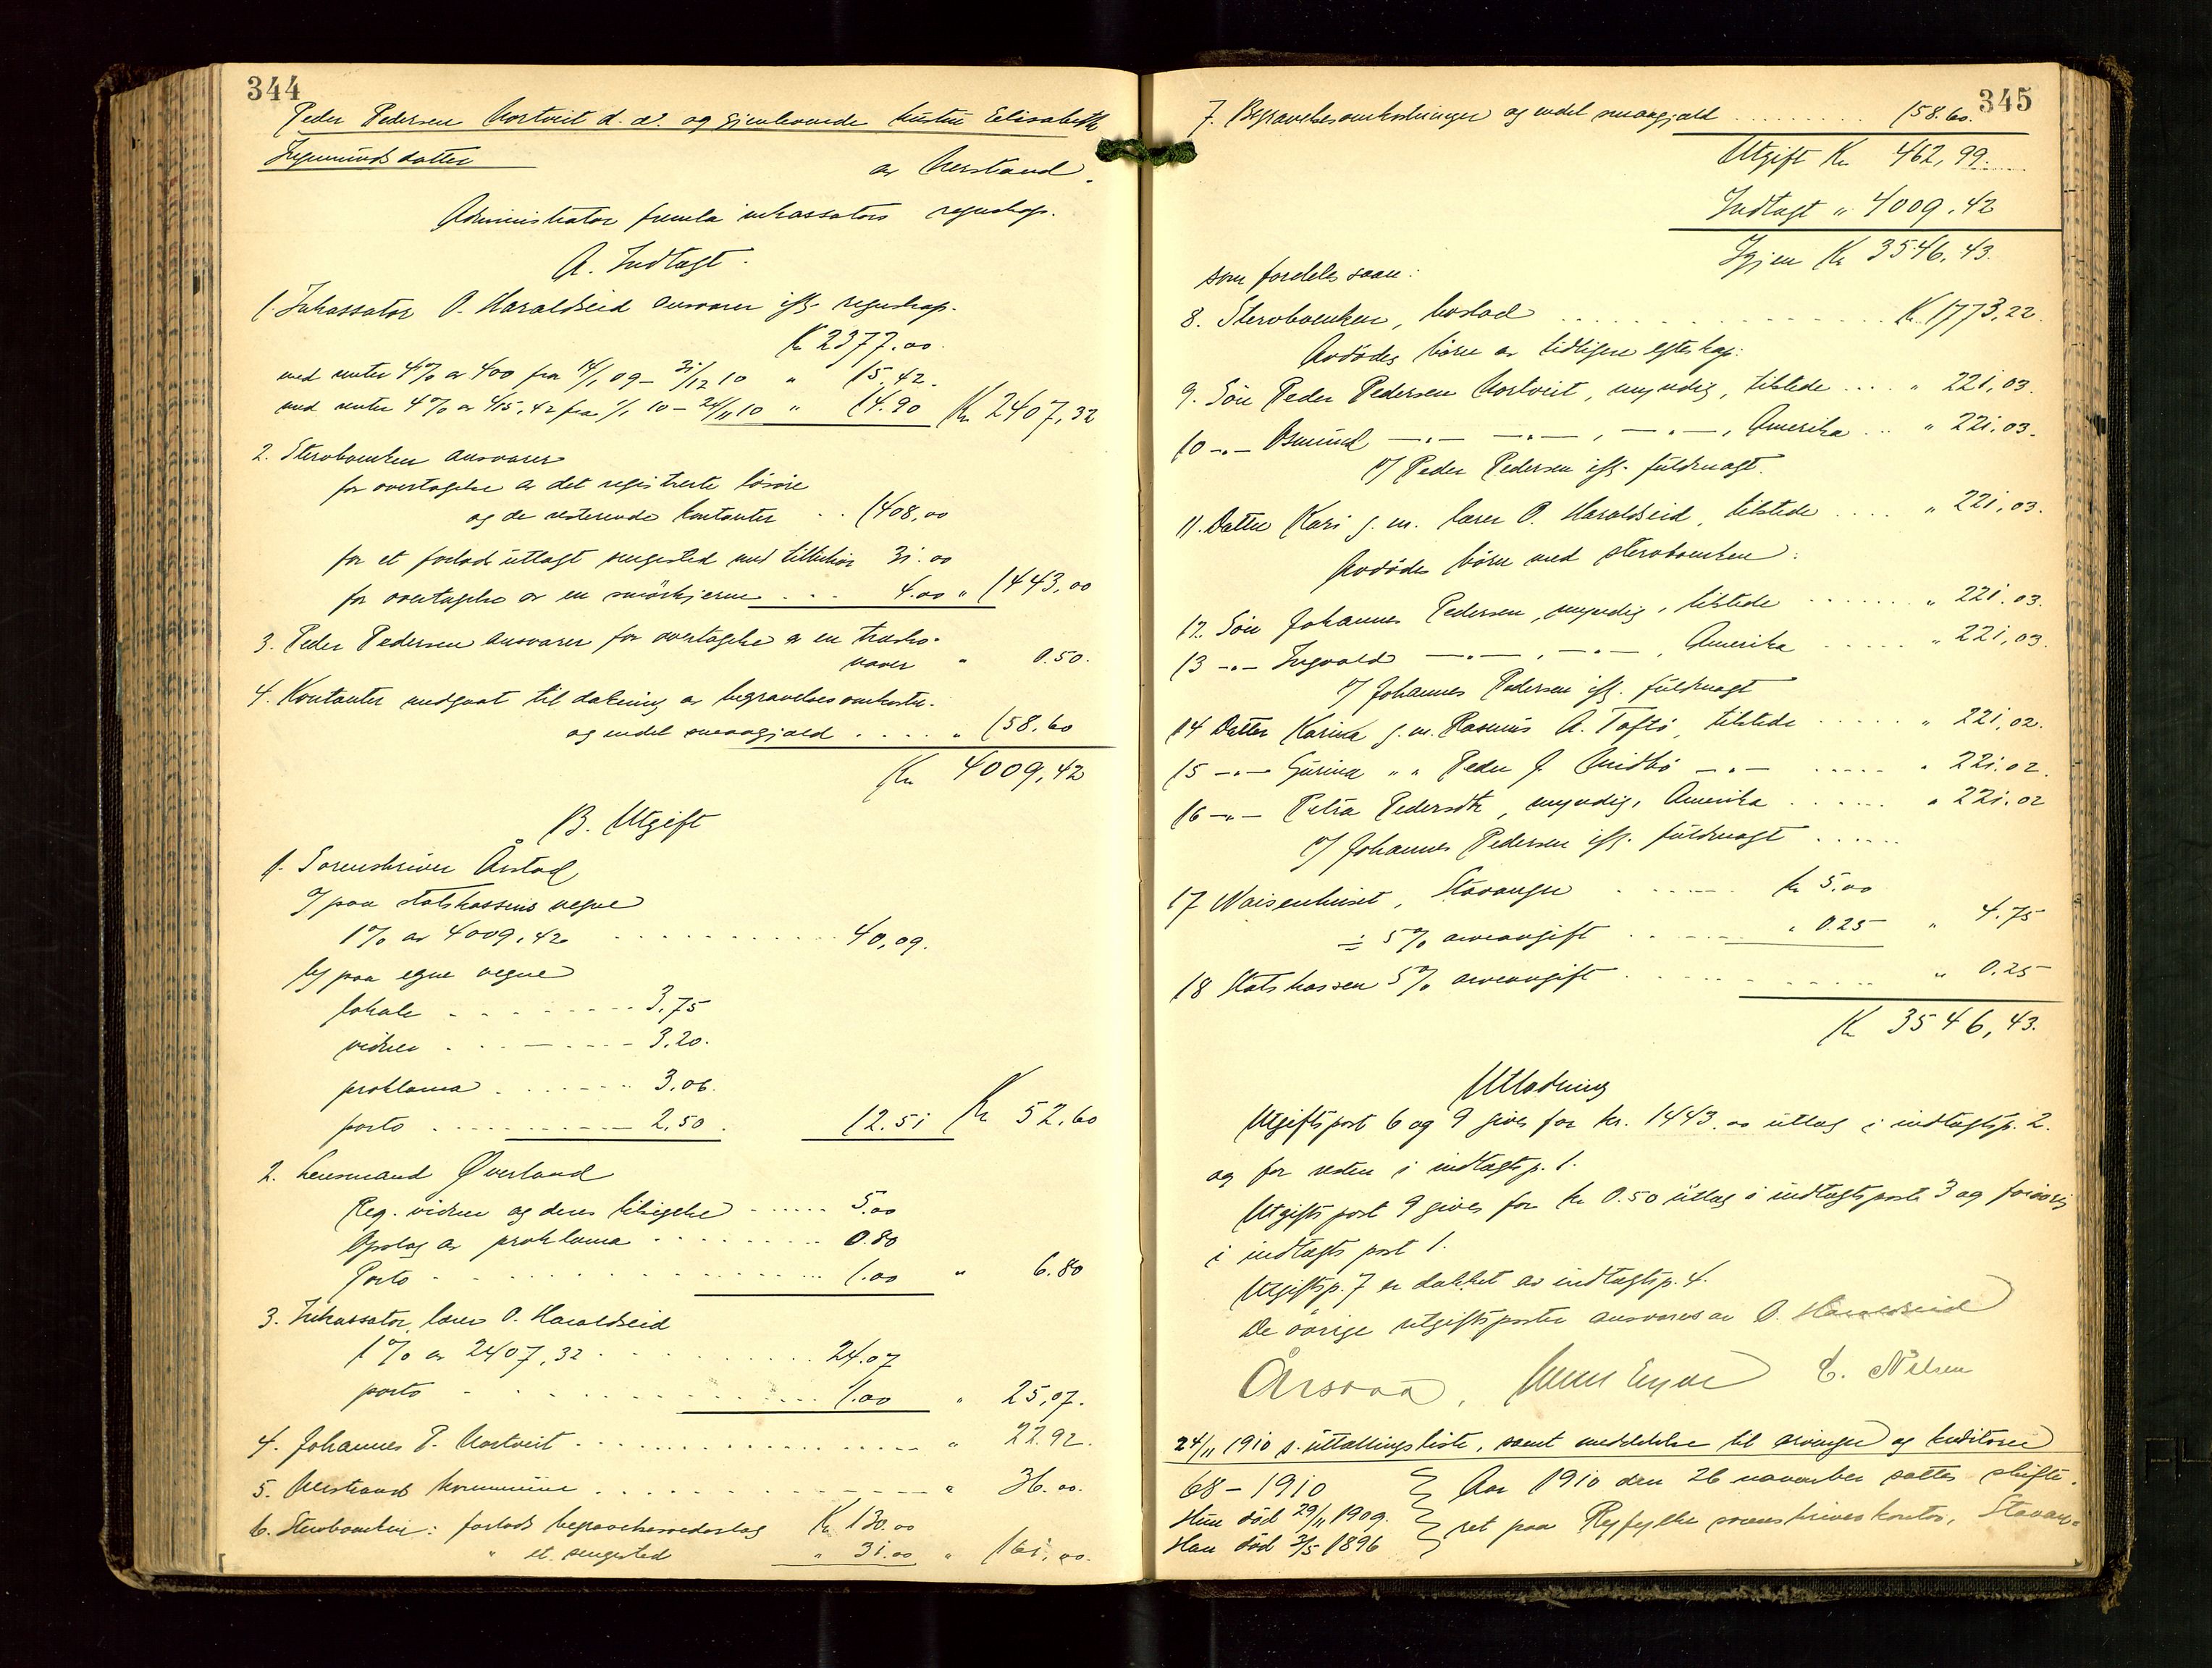 344
Peder Pedersen Nortveit d. æ. og gjenlevende hustru Elisabeth
Ingemundsdatter
av Nerstrand.
Administrator fremla inkassators regnskap.
A. Indtægt.
1. Inkassator O. Haraldseid ansvarer iflg. regnskap.
Kr 2377.00
med renter 4% av 400 fra 14/1 09 – 31/12 10 " 15.42.
med renter 4% av 415,42 fra 1/1 10 – 24/11 10 " 14.90 Kr 2407,32
2. Stervboenken ansvarer
for overtagelse av det registrerte lösöre
og de resterende kontanter . . 1408,00
for et forlods utlagt sengested med tilbehör 31.00
for overtagelse av en smörkjerne . . . 4.00 " 1443,00
3. Peder Pedersen ansvarer for overtagelse av en træsko-
naver " 0.50.
4. Kontanter medgaat til dækning av begravelsesomkostn.
og endel smaagjæld . . . . " 158.60
Kr 4009,42
B. Utgift
1. Sorenskriver Årstad
a/ paa statskassens vegne
1% av 4009,42 . . . . . 40,09.
b/ paa egne vegne
lokale . . . . . 3,75
vidner . . . . . 3.20.
proklama . . . . . 3.06.
porto . . . . . 2,50. 12.51 Kr 52,60
2. Lensmand Øverland
Reg. vidner og deres tilsigelse . . . . . 5.00
Opslag av proklama . . . . . 0.80
Porto . . . . . 1.00 " 6.80
3. Inkassator, lærer O. Haraldseid
1% av 2407,32 . . . . . 24.07
porto . . . . . 1.00 " 25,07.
4. Johannes P. Nortveit . . . . . " 22.92.
5. Nerstrands kommune . . . . . " 36.00.
6. Stervboenken: forlods begravelsesvederlag Kr 130.00
" et sengested " 31.00 " 161,00.
345
7. Begravelsesomkostninger og endel smaagjæld . . . . . 158.60.
Utgift Kr 462,99.
Indtægt " 4009.42
Igjen Kr 3546,43.
som fordeles saan:
8. Stervboenken, boslod . . . . . Kr 1773,22.
Avdödes börn av tidligere egteskap:
9. Sön Peder Pedersen Nortveit, myndig, tilstede . . . . " 221,03.
10 -"- Osmund -"- -"-, -"-, Amerika . . . " 221.03.
v/ Peder Pedersen iflg. fuldmagt.
11. Datter Kari g. m. lærer O. Haraldseid, tilstede . . . . " 221,03.
Avdödes börn med stervboenken:
12. Sön Johannes Pedersen, myndig, tilstede . . . . . " 221.03.
13 -"- Ingvald -"-, -"-, Amerika . . . . . " 221,03.
v/ Johannes Pedersen iflg. fuldmagt
14 Datter Karina g. m. Rasmus A. Toftö, tilstede . . . . . " 221,02.
15 -"- Gurina " " Peder J. -"- . . . . . " 221.02.
16 -"- Petra Pedersdtr, myndig, Amerika . . . . . " 221.02
v/ Johannes Pedersen iflg. fuldmagt . . . . .
17 Waisenhuset, Stavanger . . . . . kr 5.00
÷ 5% arveavgift . . . . . " 0.25 " 4.75
18 Statskassen 5% arveavgift . . . . . " 0.25
Kr 3546,43.
Utlodning
Utgiftspost 6 og 9 gives for kr. 1443.00 utlæg i indtægtsp. 2.
og for resten i indtægtsp. 1.
Utgiftspost 9 gives for kr 0.50 utlæg i indtægtspost 3 og forövrig
i indtægts post 1.
Utgiftsp. 7 er dækket av indtægtsp. 4.
De övrige utgiftsposter ansvares av O. Haraldseid
Årstad, E. Nilsen
24/11 1910 s. uttællingsliste, samt meddelelse til arvinger og kreditorer
68 – 1910 } Aar 1910 den 26 november sattes skifte-
Hun död 29/11 1909. } ret paa Ryfylke sorenskriverkontor, Stavan-
Han död 3/5 1896 }